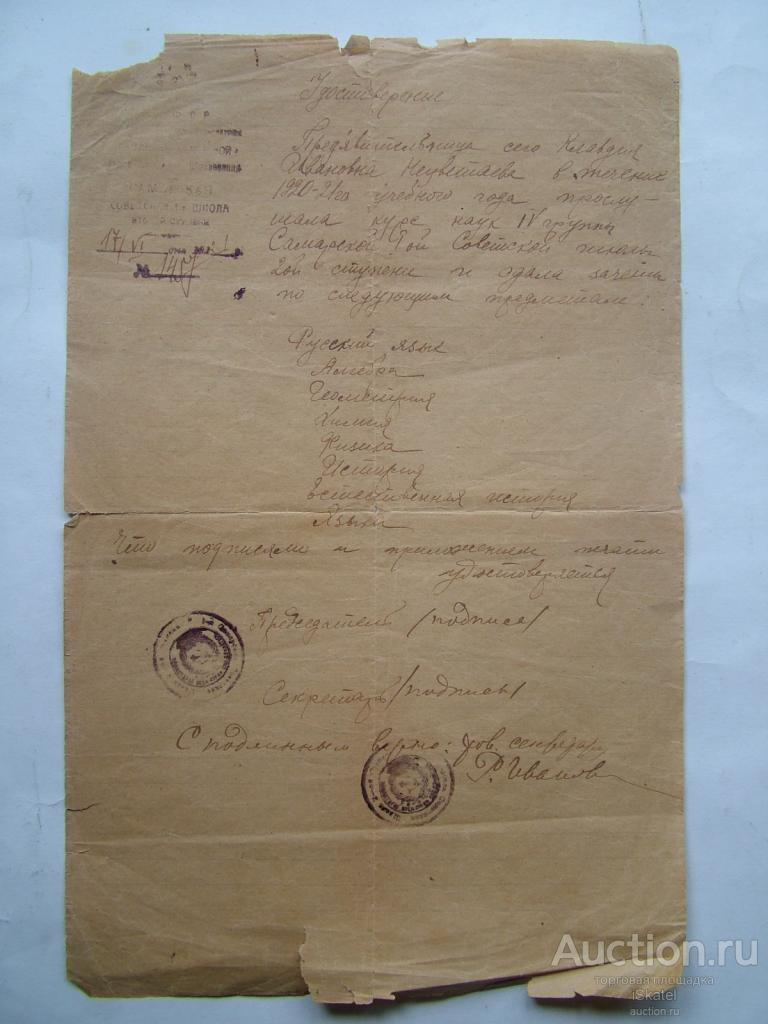 Удостоверение
Предъявительница сего Клавдия
Ивановна Нецветаева в течение
1920-21го учебного года прослу-
шала курс наук IV группы
Самарской 9ой Советской школы
2ой ступени и сдала зачеты
по следующим предметам:
С Р
СОВЕТСКАЯ ШКОЛА
17/VI
№ 1457
Русский язык
Алгебра
Геометрия
Химия
Физика
История
Естественная история
Языки
Что подписями и приложением печати
удостоверяется
Председатель /подпись/
Секретарь /подпись/
С подлинным верно: секретарь
Р. Иванов
Auction.ru
торговая площадка
iSkatel
auction.ru